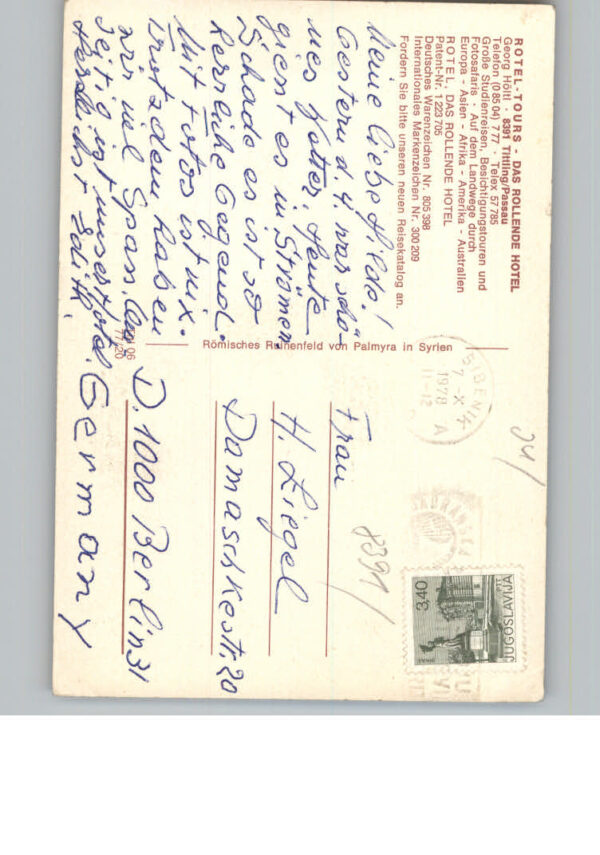 ROTEL-TOURS - DAS ROLLENDE HOTEL
Georg Höltl · 8391 Tittling/Passau
Telefon (0 85 04) 7 77 · Telex 57 785
Große Studienreisen, Besichtigungstouren und
Fotosafaris - Auf dem Landwege durch
Europa - Asien - Afrika - Amerika - Australien
ROTEL, DAS ROLLENDE HOTEL
Patent-Nr. 1 223 705
Deutsches Warenzeichen Nr. 805 398
Internationales Markenzeichen Nr. 300 209
Fordern Sie bitte unseren neuen Reisekatalog an.
Meine liebe Hilde!
Gestern d. 4. war schö-
nes Wetter. Heute
giest es in Strömen.
Schade es ist so
herrliche Gegend.
Mit Fotos ist nix.
Trotzdem haben
wir viel Spass.
seitig ist unser Hotel.
Herzlichst Edith.
06
77/20
Römisches Ruinenfeld von Palmyra in Syrien
ŠIBENIK
7 -X
1978 A
11-12
24/
8391/
JUGOSLAVIJA
3,40
Frau
H. Liegel
Damaschkestr. 20
D. 1000 Berlin 31
Germany